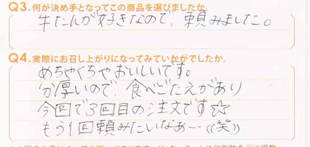 Q3.何が決め手となってこの商品を選びましたか
牛たんが好きなので、頼みました。
Q4.実際にお召し上がりになってみていかがでしたか。
めちゃくちゃおいしいです。
分厚いので、食べごたえがあり
今回で3回目の注文です☆
もう1回頼みたいなあ…((笑))